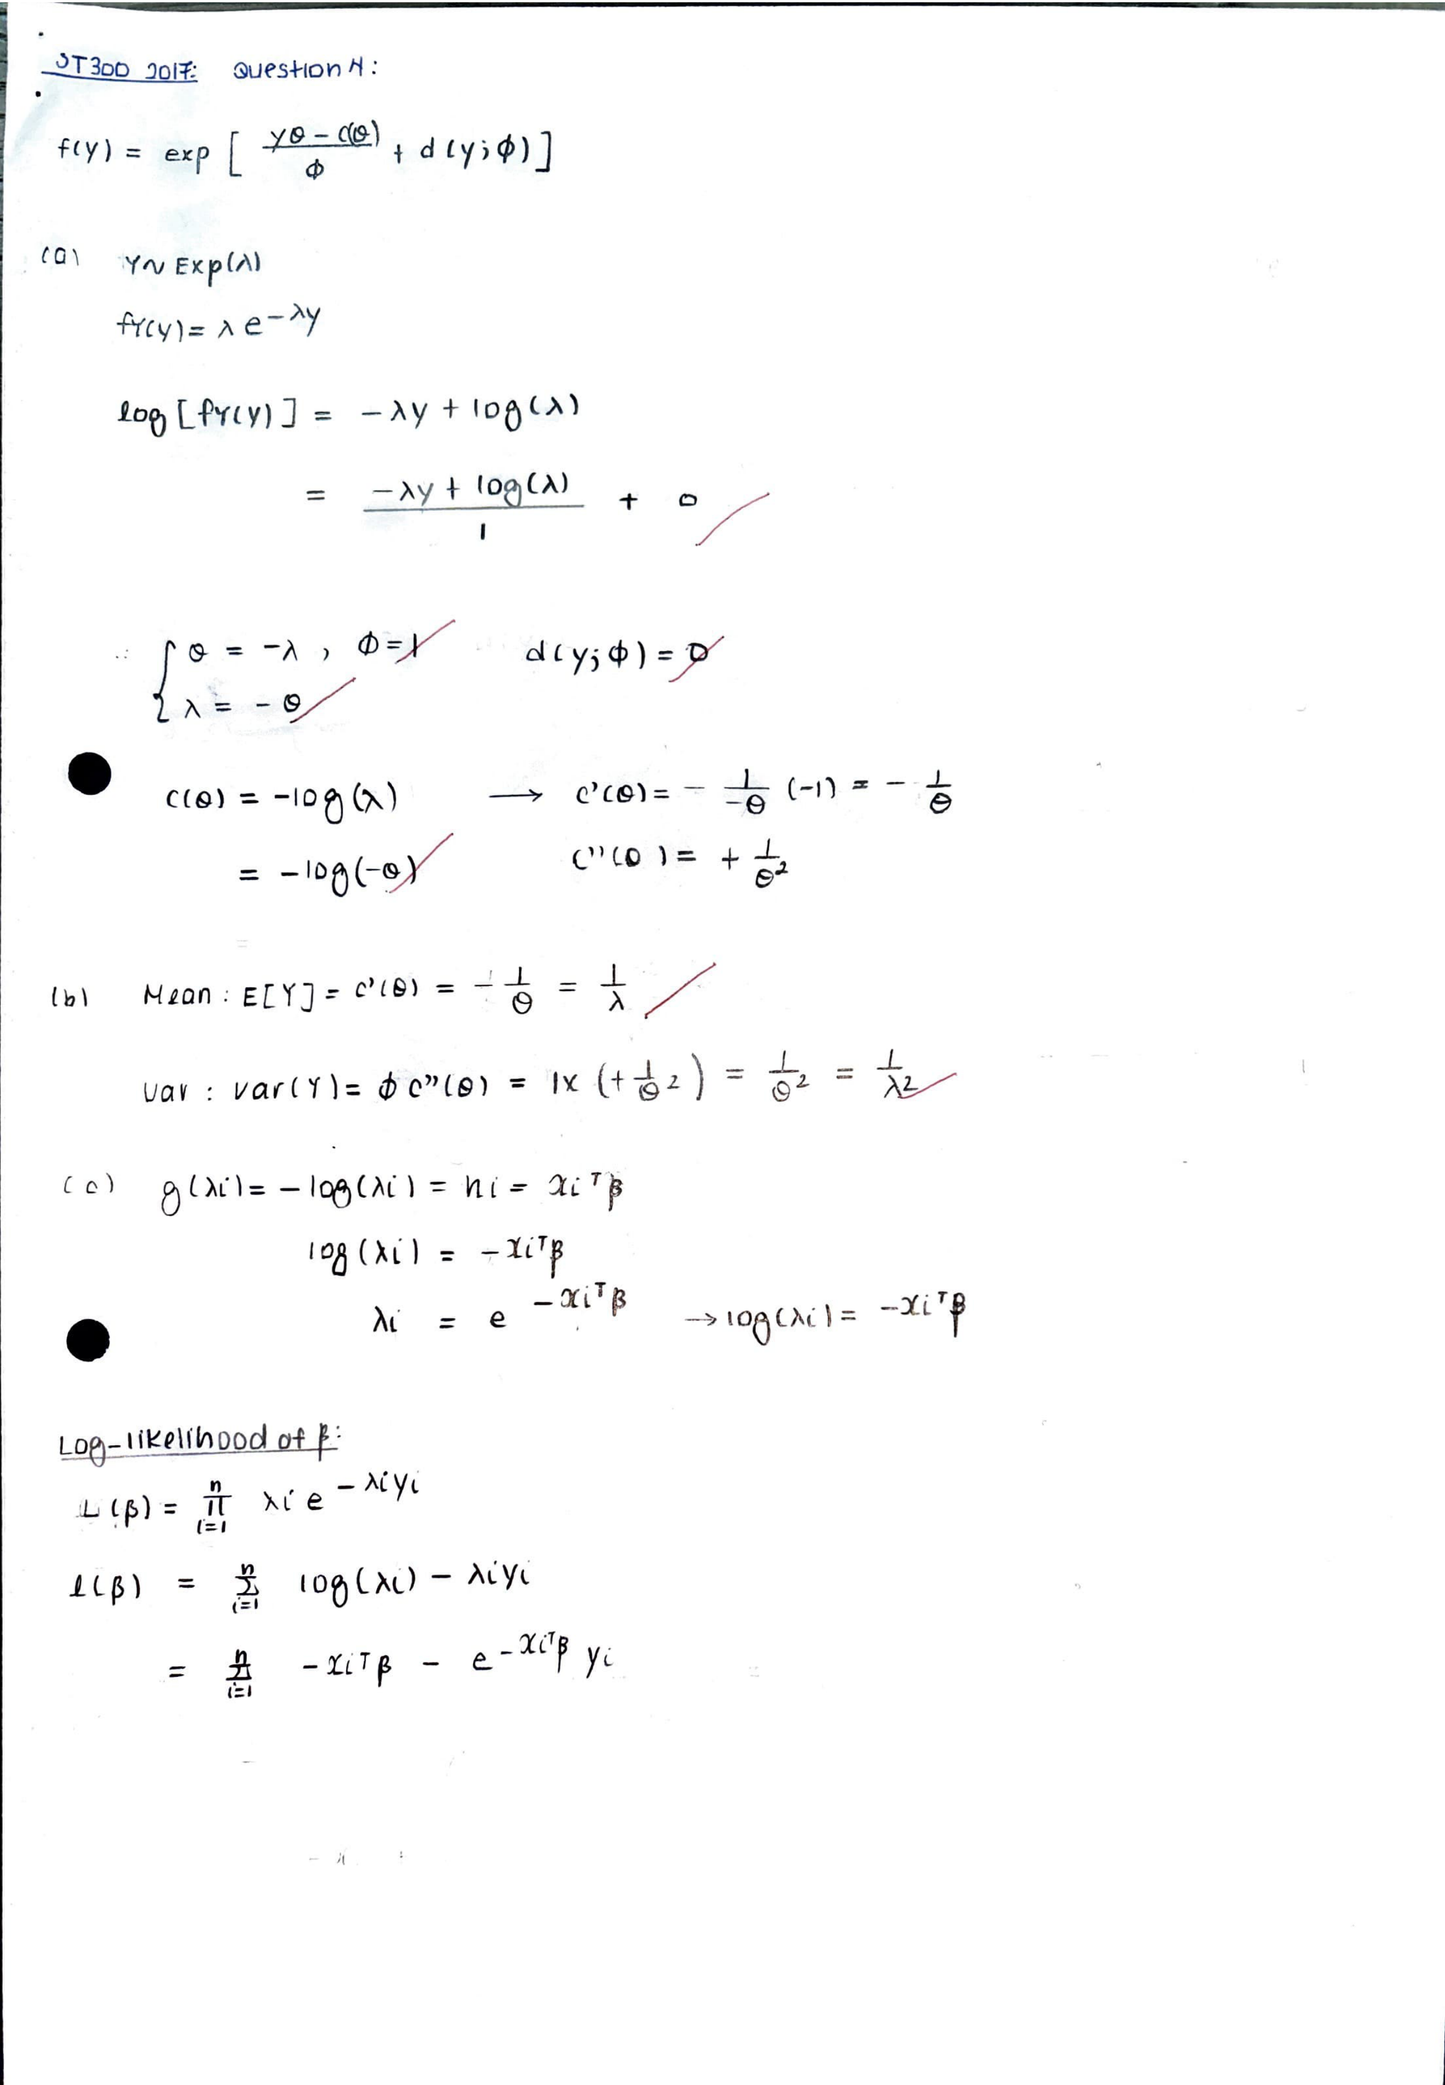 ST300 2017: Question 4:
f(y) = exp [ (yθ - c(θ))/ϕ + d(y;ϕ) ]
(a) Y~Exp(λ)
fY(y) = λe^{-λy}
log[fY(y)] = -λy + log(λ)
= (-λy + log(λ))/1 + 0
∴ { θ = -λ, ϕ=1 d(y;ϕ) = 0
λ = -θ
c(θ) = -log(λ) → c'(θ) = - 1/-θ (-1) = - 1/θ
= -log(-θ) c''(θ) = + 1/θ²
(b) Mean: E[Y] = c'(θ) = - 1/θ = 1/λ
Var: Var(Y) = ϕ c''(θ) = 1x (+ 1/θ²) = 1/θ² = 1/λ²
(c) g(λi) = -log(λi) = ηi = xiᵀβ
log(λi) = -xiᵀβ
λi = e^{-xiᵀβ} → log(λi) = -xiᵀβ
Log-likelihood of β:
L(β) = ∏_{i=1}^{n} λi e^{-λiyi}
ℓ(β) = Σ_{i=1}^{n} log(λi) - λiyi
= Σ_{i=1}^{n} -xiᵀβ - e^{-xiᵀβ} yi